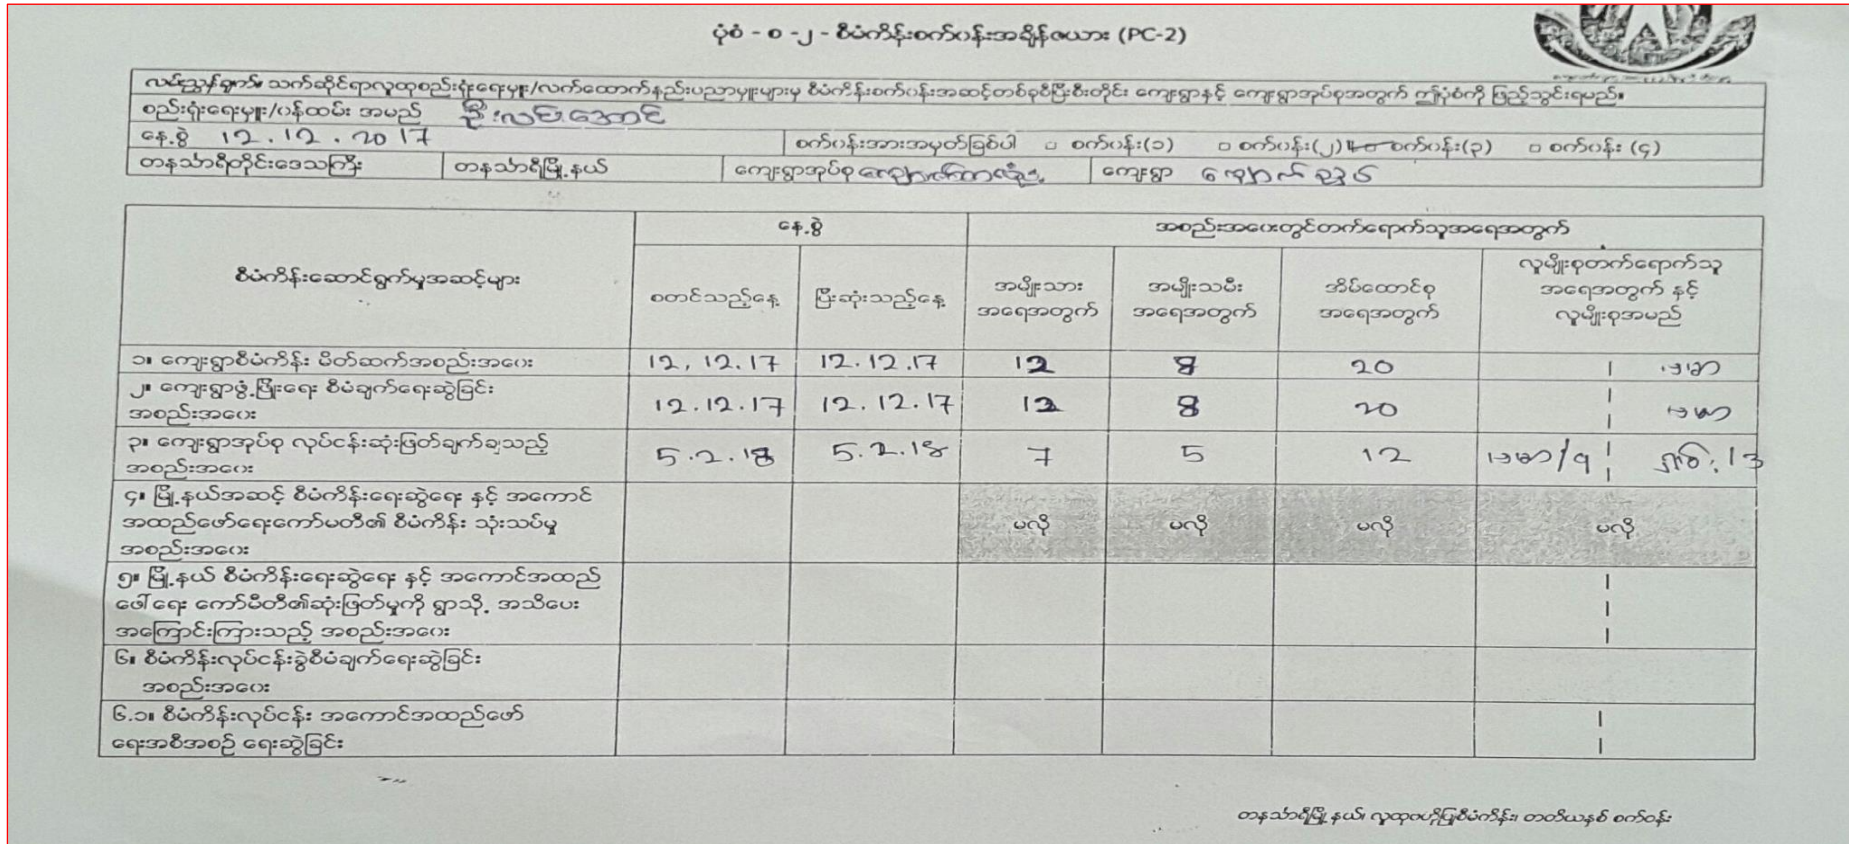 ပုံစံ - စ -၂ - စီမံကိန်းစက်ဝန်းအချိန်ဇယား (PC-2)
လမ်းညွှန်ချက်။ သက်ဆိုင်ရာလူထုစည်းရုံးရေးမှူး/လက်ထောက်နည်းပညာမှူးများမှ စီမံကိန်းစက်ဝန်းအဆင့်တစ်ခုစီပြီးစီးတိုင်း ကျေးရွာနှင့် ကျေးရွာအုပ်စုအတွက် ဤပုံစံကို ဖြည့်သွင်းရမည်။
စည်းရုံးရေးမှူး/ဝန်ထမ်း အမည် ဦးလမ်းအောင်
နေ့စွဲ 12.12.2017 စက်ဝန်းအားအမှတ်ခြစ်ပါ □ စက်ဝန်း(၁) □ စက်ဝန်း(၂) စက်ဝန်း(၃) □ စက်ဝန်း (၄)
တနင်္သာရီတိုင်းဒေသကြီး တနင်္သာရီမြို့နယ် ကျေးရွာအုပ်စု ကျေးရွာ
နေ့စွဲ အစည်းအဝေးတွင်တက်ရောက်သူအရေအတွက်
စီမံကိန်းဆောင်ရွက်မှုအဆင့်များ စတင်သည့်နေ့ ပြီးဆုံးသည့်နေ့ အမျိုးသား အမျိုးသမီး အိမ်ထောင်စု လူမျိုးစုတက်ရောက်သူ
အရေအတွက် အရေအတွက် အရေအတွက် အရေအတွက် နှင့်
လူမျိုးစုအမည်
၁။ ကျေးရွာစီမံကိန်း မိတ်ဆက်အစည်းအဝေး 12.12.17 12.12.17 12 8 20 ဗမာ
၂။ ကျေးရွာဖွံ့ဖြိုးရေး စီမံချက်ရေးဆွဲခြင်း
အစည်းအဝေး 12.12.17 12.12.17 12 8 20 ဗမာ
၃။ ကျေးရွာအုပ်စု လုပ်ငန်းဆုံးဖြတ်ချက်ချသည့်
အစည်းအဝေး 5.2.18 5.2.18 7 5 12 ဗမာ/၅
၄။ မြို့နယ်အဆင့် စီမံကိန်းရေးဆွဲရေး နှင့် အကောင်
အထည်ဖော်ရေးကော်မတီ၏ စီမံကိန်း သုံးသပ်မှု မလို မလို မလို မလို
အစည်းအဝေး
၅။ မြို့နယ် စီမံကိန်းရေးဆွဲရေး နှင့် အကောင်အထည်
ဖေါ်ရေး ကော်မီတီ၏ဆုံးဖြတ်မှုကို ရွာသို့ အသိပေး
အကြောင်းကြားသည့် အစည်းအဝေး
၆။ စီမံကိန်းလုပ်ငန်းခွဲစီမံချက်ရေးဆွဲခြင်း
အစည်းအဝေး
၆.၁။ စီမံကိန်းလုပ်ငန်း အကောင်အထည်ဖော်
ရေးအစီအစဉ် ရေးဆွဲခြင်း
တနင်္သာရီမြို့နယ်၊ လူထုဗဟိုပြုစီမံကိန်း၊ တတိယနှစ် စက်ဝန်း